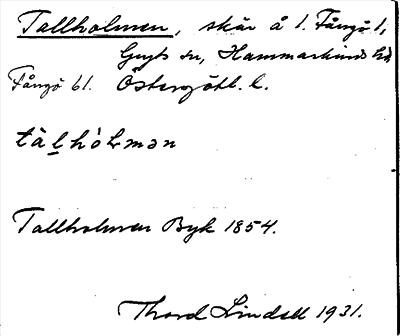 Tallholmen, skär å 1. Fångö 1,
Gryts sn, Hammarkinds hd
Fångö 61. Östergötl. l.
tàl̠hòɫmən
Tallholmen Byk 1854.
Thord Lindell 1931.